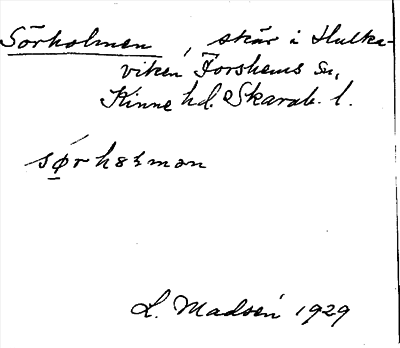 Sörholmen, skär i Hulka-
viken Forshems Sn,
Kinne hd. Skarab. l.
L. Madsén 1929